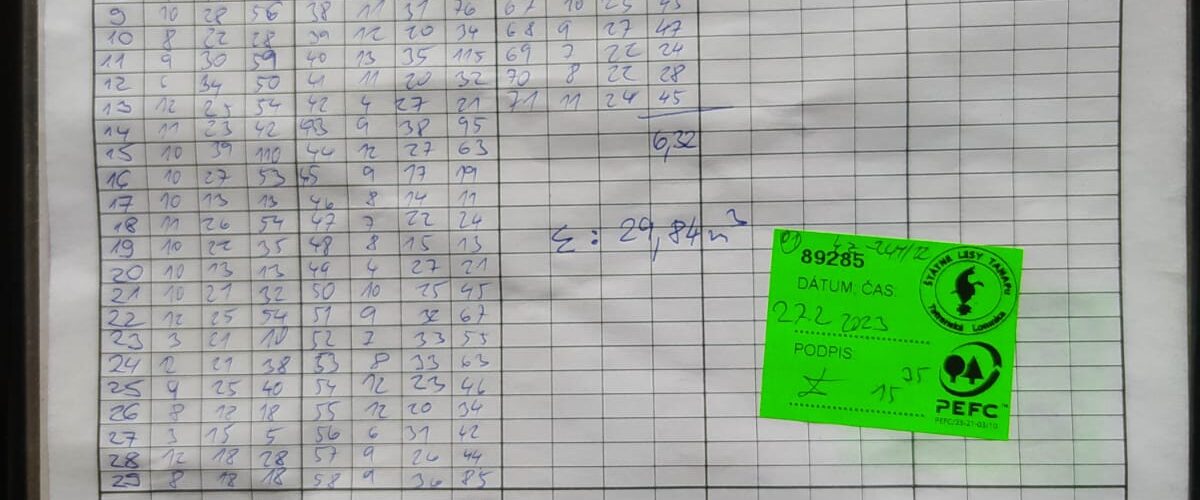 9 10 28 56 38 11 31 76 67 10 25 45
10 8 22 28 39 12 20 34 68 9 27 47
11 9 30 59 40 13 35 115 69 7 22 24
12 6 34 50 41 11 20 32 70 8 22 28
13 12 25 54 42 4 27 21 71 11 24 45
14 11 23 42 43 9 38 95
6,32
15 10 39 110 44 12 27 63
16 10 27 53 45 9 17 19
17 10 13 13 46 8 14 11
18 11 26 54 47 7 22 24
19 10 22 35 48 8 15 13
Σ: 29,84 m³
20 10 13 13 49 4 27 21
21 10 21 32 50 10 25 45
22 12 25 54 51 9 32 67
23 3 21 10 52 7 33 55
24 12 21 38 53 8 33 63
25 9 25 40 54 12 23 46
26 8 12 18 55 12 20 34
27 3 15 5 56 6 31 42
28 12 18 28 57 9 26 44
29 8 18 18 58 9 36 85
89285
ŠTÁTNE LESY TANAPU
Tatranská Lomnica
DÁTUM, ČAS:
27.2 2023
PODPIS:
15 35
PEFC™
PEFC/23-21-03/10